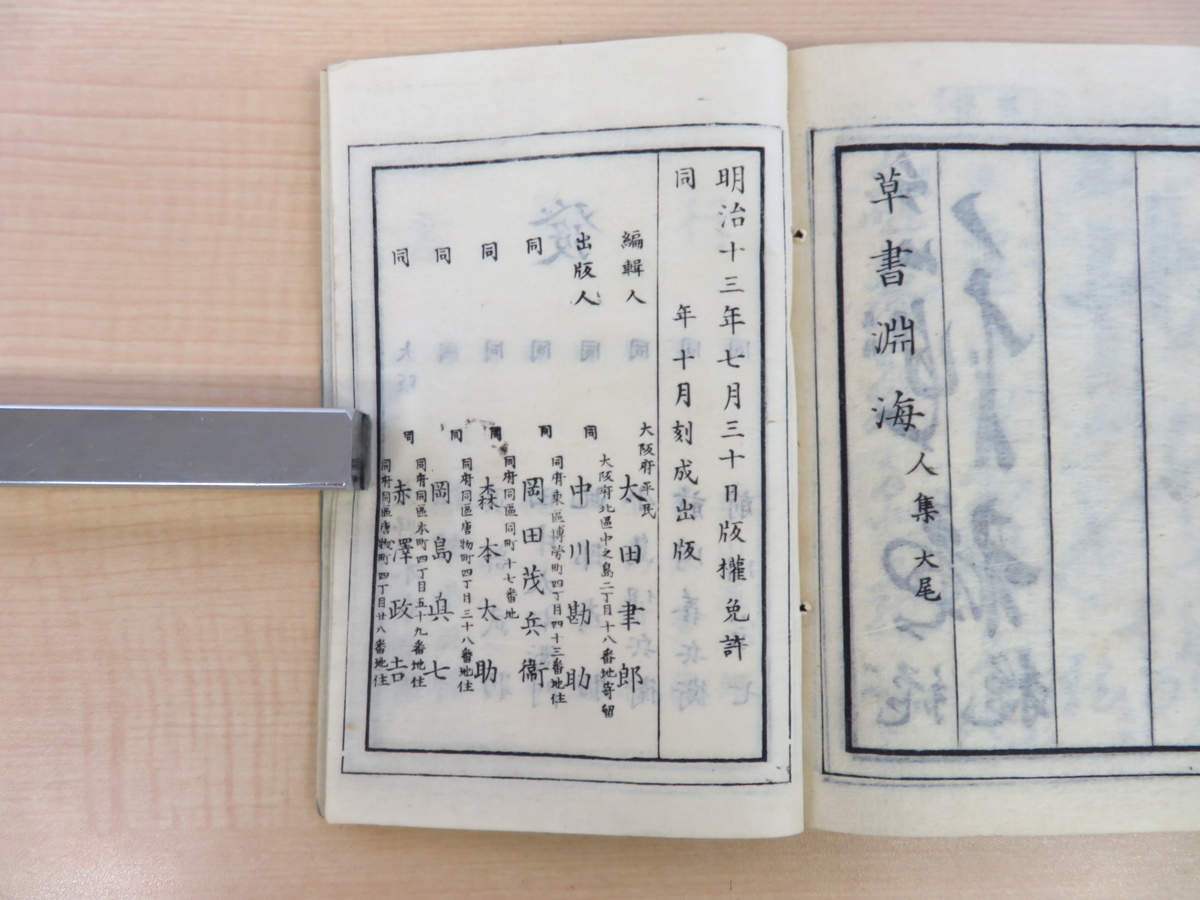 草書淵海 人集 大尾
明治十三年七月三十日版權免許
同 年十月刻成出版
大阪府平民
編輯人 太田聿郎
大阪府北區中之島二丁目十八番地寄留
出版人 同 中川勘助
同府東區博勞町四丁目四十三番地住
同 同 岡田茂兵衞
同府同區同町十七番地
同 同 森本太助
同府同區唐物町四丁目三十八番地住
同 同 岡島真七
同府同區本町四丁目五十九番地住
同 同 赤澤政吉
同府同區唐物町四丁目廿八番地住